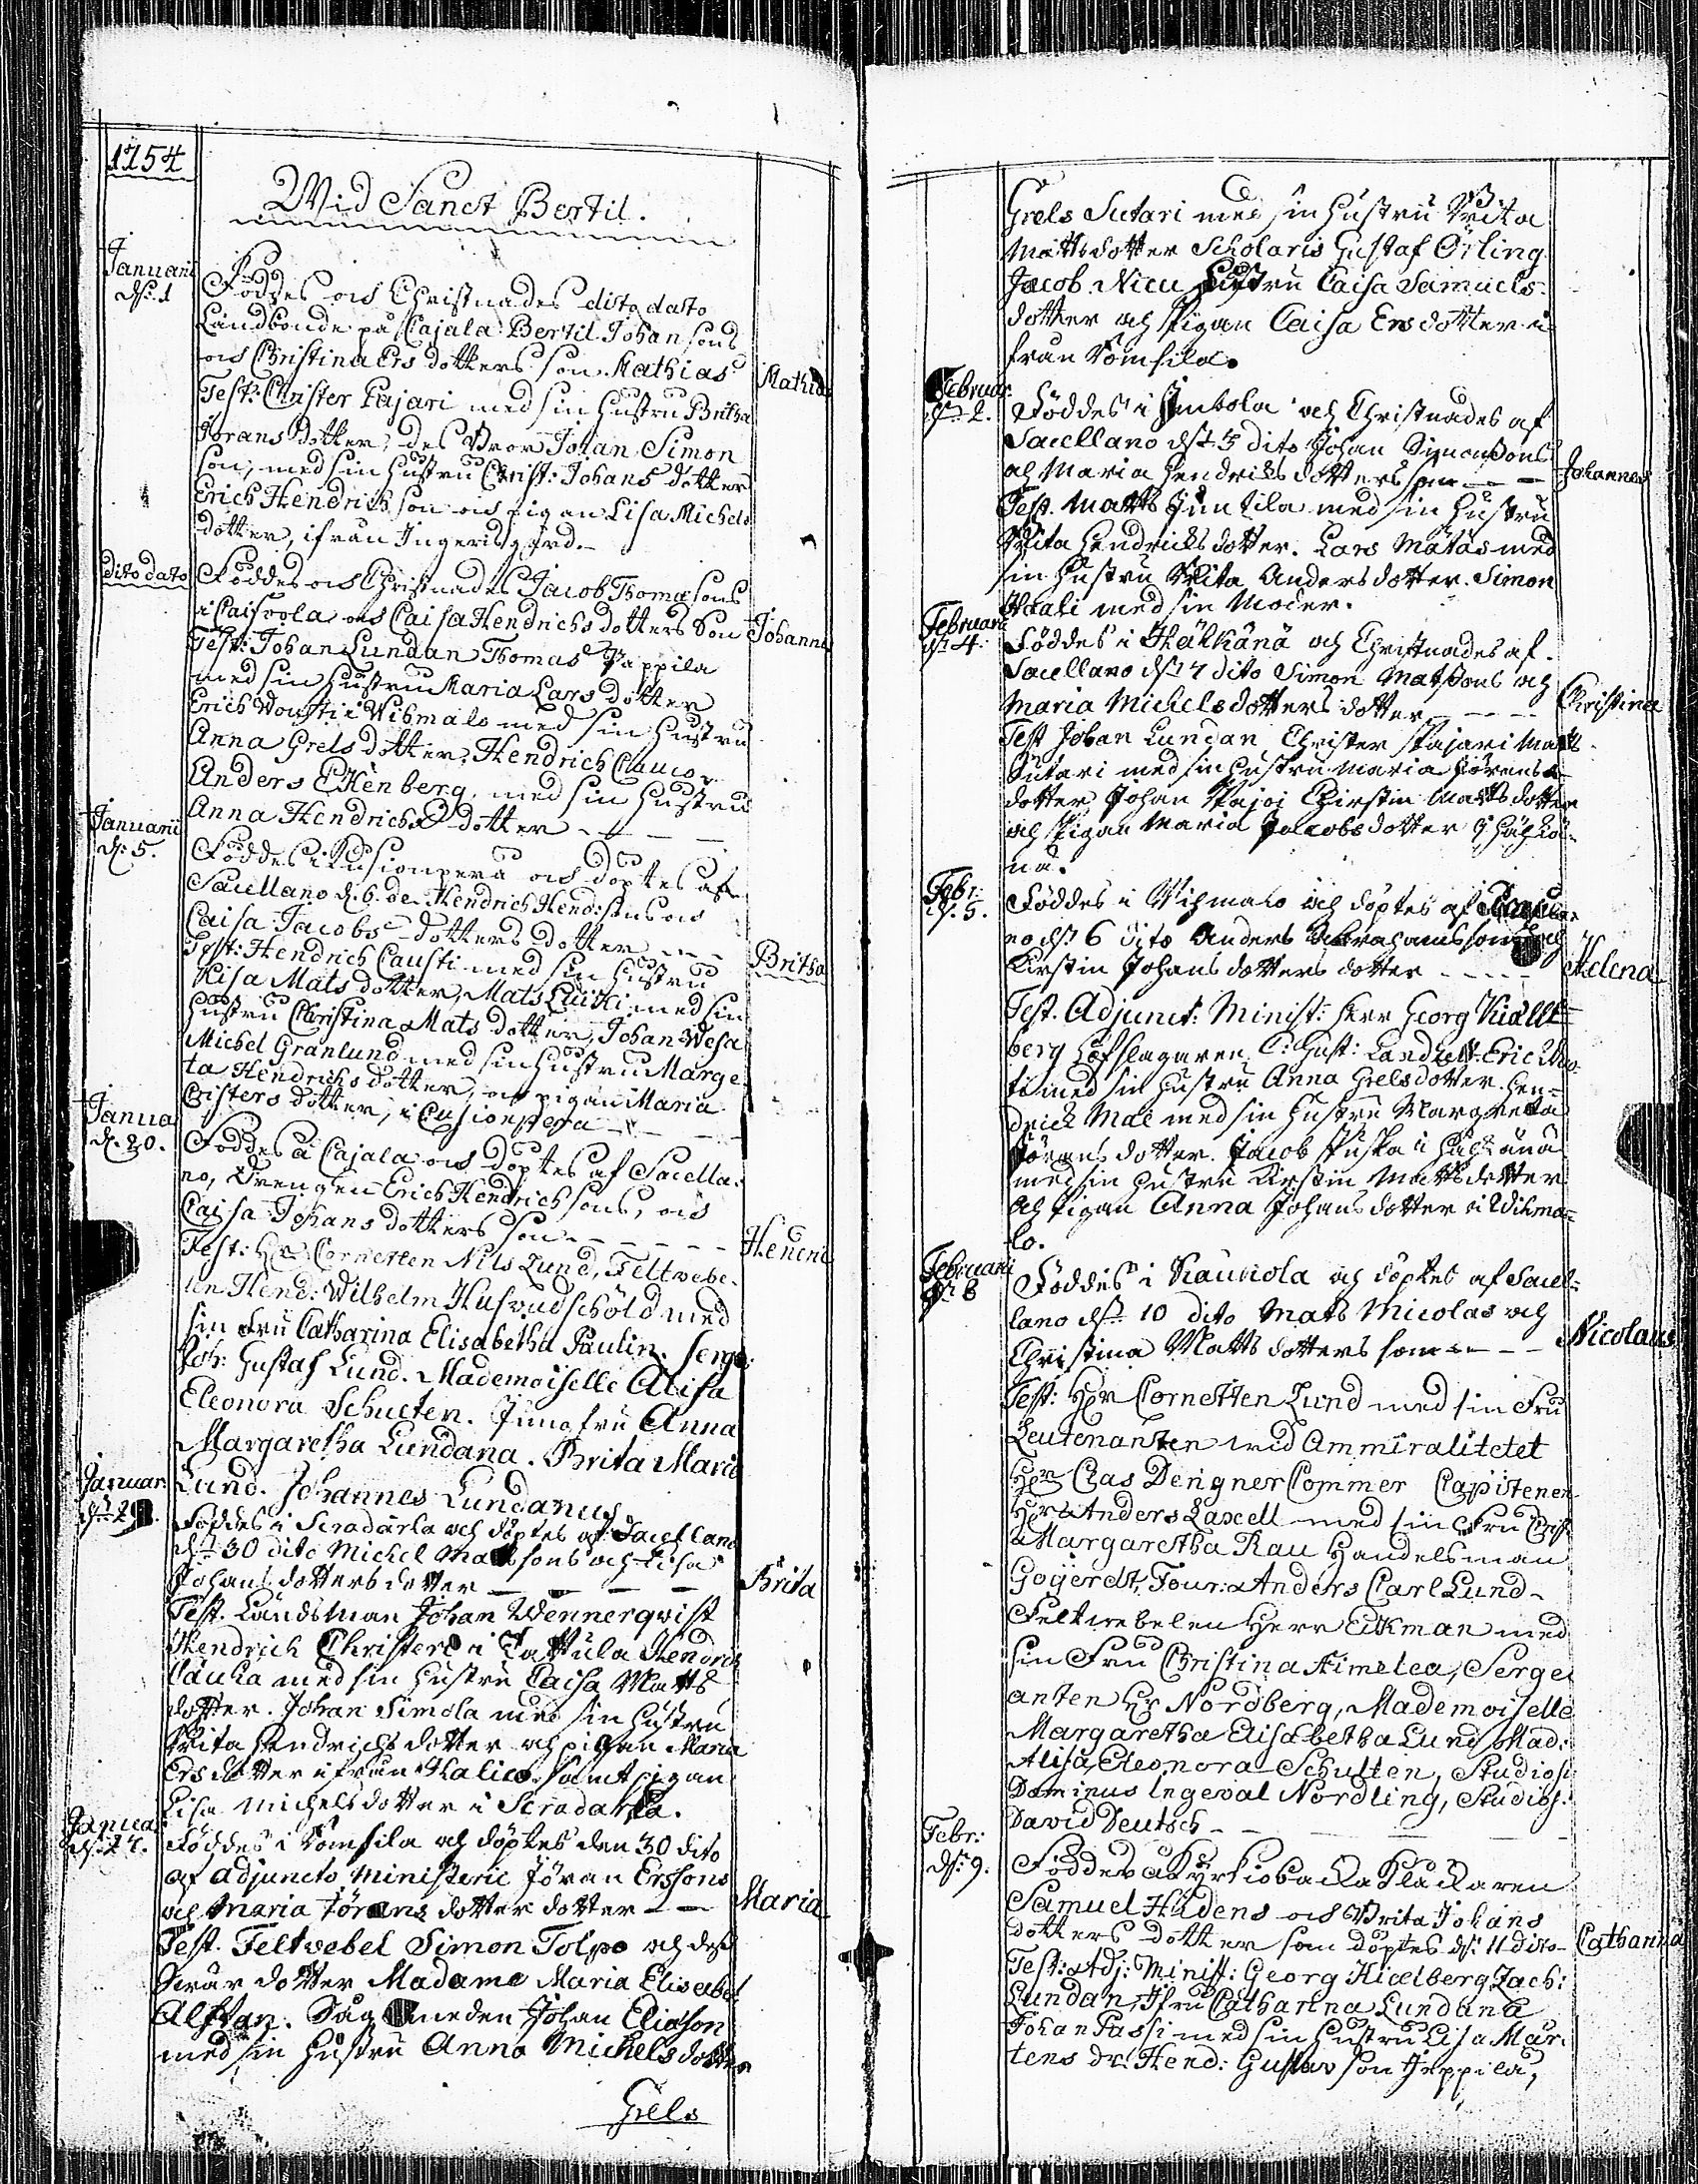 1754
Wid Sanct Bertil.
Januarii
d: 1
Föddes och Christnades dito dato
Landbonde på Cajala Bertil Johansons
och Christina Ers dotters son Mathias
Mathias
Test: Christer Pajari med sin hustru Britha
Jörans dotter, des Bror Johan Simon
son, med sin hustru Christ: Johans dotter
Erich Hendrichson och pigan Lisa Michels
dotter, ifrån Ingerisgård.
dito dato
Föddes och Christnades Jacob Thomæsons
och Caisa Hendrichs dotters Son
Johannes
Test: Johan Lundan Thomas Pappila
med sin hustru Maria Lars dotter
Erich Wousti i Wihmalo med sin hustru
Anna Grels dotter, Hendrich Cauco
Anders Ekenberg, med sin hustru
Anna Hendrichs dotter
Januarii
d: 5.
Föddes i Kusionperä och döptes af
Sacellano d. 6. de Hendrich Hend:sons och
Caisa Jacobs dotters dotter
Britha
Test: Hendrich Causti med sin hustru
Lisa Mats dotter, Mats Luicki med sin
hustru Christina Mats dotter, Johan Wesa
Michel Granlund med sin hustru Marge
ta Hendrichs dotter, och pigan Maria
Christers dotter, i Cusionpera
Janua
d. 20.
Föddes i Cajala och döptes af Sacella-
no, Drengen Erich Hendrichsons, och
Caisa Johans dotters son
Henric
Test: Hr Cornetten Nils Lund, Feltwebe-
len Hend: Wilhelm Hufvudschöld med
sin fru Catharina Elisabetha Paulin. Serge:
Joh: Gustaf Lund. Mademoiselle Alisa
Eleonora Schulten. Jungfru Anna
Margaretha Lundana. Brita Maria
Lund. Johannes Lundanus
Januar.
Föddes i Isradarla och döptes af Sacellano
d: 30 dito Michel Matssons och Lisa
Johans dotters dotter
Brita
Test. Landsman Johan Wennerqvist
Hendrich Christers i Tattula Hendrich
Cauka med sin hustru Caisa Matts
dotter. Johan Simola med sin hustru
Brita Hendrichs dotter och pigan Maria
Ers dotter ifrån Halico samt pigan
Lisa Michels dotter i
Janua
d: 27.
Föddes i Romsila och döptes den 30 dito
af Adjuncto Ministerii Jöran Erssons
och Maria Jörans dotter dotter
Maria
Test. Feltvebel Simon Tolpo och dess
Svär dotter Madame Maria Elisabet
Alftan. Såg Johan Eliason
med sin hustru Anna Michels dotter
Grels
Grels Sutari med sin hustru Brita
Matts dotter Scholaris Gustaf Örling
Jacob Nicu hustru Caisa Samuels
dotter och pigan Caisa Ers dotter i
från Romsila.
Februar:
d: 2.
Föddes i Junkola och Christnades af
Sacellano d: 3 dito Johan Simonsons
och Maria Hendrichs dotters son
Johannes
Test. Matts Juntila med sin hustru
Brita Hendrichs dotter. Lars Mätäs med
sin hustru Brita Anders dotter. Simon
Haali med sin Moder.
Februari
d: 4:
Föddes i Hälkänä och Christnades af
Sacellano d: 7 dito Simon Matsons och
Maria Michels dotters dotter
Christina
Test Johan Lundan, Christer Pajari Matts
Sutari med sin hustru Maria Jörans
dotter Johan Pajoi Christin Matts dotter
och pigan Maria Jacobs dotter i Hälkä-
nä.
Febr:
d: 5.
Föddes i Wihmalo och döptes af Sacella-
no d: 6 dito Anders Abrahamsson och
Kirstin Johans dotters dotter
Helena
Test. Adjunct: Minist: Herr Georg Kiällt-
berg Hofslagaren C: Gust: Landzell Eric Wou-
ti med sin hustru Anna Grels dotter. Hen-
drich Mal med sin hustru Margreta
Jörans dotter. Jacob Puska i Hälkänä
med sin hustru Kirstin Matts dotter
och pigan Anna Johans dotter i Wihma-
lo.
Februari
d: 8
Föddes i Kaukola och döptes af Sacel-
lano d: 10 dito Mats Nicolas och
Christina Matts dotters son
Nicolaus
Test: Hr Cornetten Lund med sin Fru
Leutenanten wid Ammiralitetet
Hr Clas Dengner Commer Capitenen
Hr Anders Laxell med sin Fru Christ
Margaretha Rau Handelsman
Goijerdt, Four: Anders Carl Lund
Feltwebelen Herr Eikman med
sin Fru Christina Aimelea, Serge
anten Hr Nordberg, Mademoiselle
Margaretha Elisabetha Lund Mad:
Alisa Eleonora Schulten, Studiosi
Dominus Ingeval Nordling, Studios:
David Deutsch
Febr:
d: 9.
Föddes å Kyrkiobacka Klåckaren
Samuel Hidens och Brita Johans
dotters dotter som döptes d: 11 dito
Catharina
Test: Adj: Minist: Georg Kiælberg Zach:
Lundan, Jfru Catharina Lundana
Johan Passi med sin hustru Lisa Mår-
tens dr: Hend: Gustavson Jeppila,